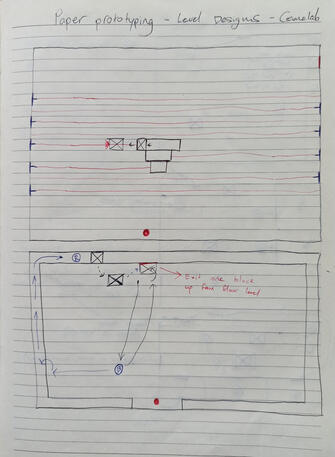 Paper prototyping - Level Designs - Gamelab
2
Exit one block
up from floor level